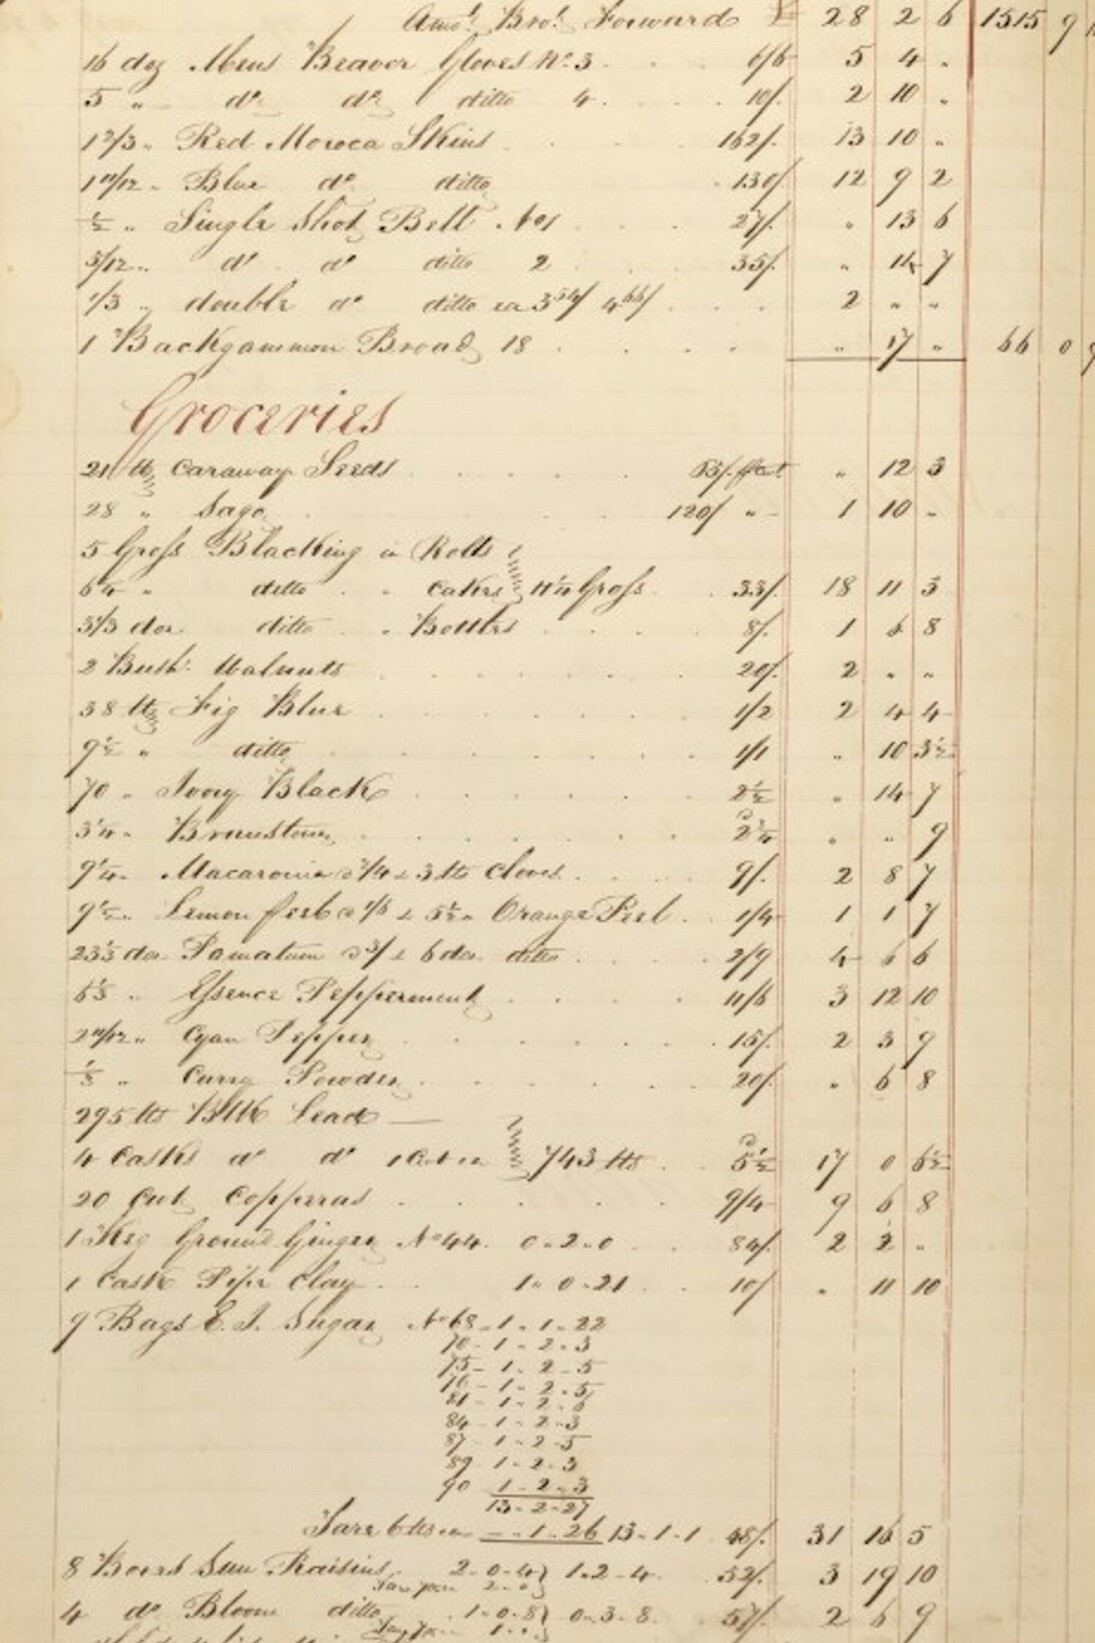 Amot. Brot. Forward £ 28 2 6 1515 9
16 doz Mens Beaver Gloves No. 3 6/6 5 4 "
5 " do do ditto 4 10/. 2 10 "
1 2/3 " Red Moroca Skins 162/. 13 10 "
1 11/12 " Blue do ditto 130/ 12 9 2
1/2 " Single Shot Belt No 1 27/. " 13 6
5/12 " do do ditto 2 35/. " 14 7
1/3 " double do ditto 2 " "
1 Backgammon Broad 18 " 17 " 66 0 9
Groceries
21 lb Caraway Seeds " 12 3
28 " Sago 120/ " 1 10 "
5 Gross Blacking in Rolls
6 1/4 " ditto " Cakes 11 1/4 Gross 33/. 18 11 3
3 1/3 doz ditto " Bottles 8/. 1 6 8
2 Bush. Walnuts 20/. 2 " "
38 lb Fig Blue 1/2 2 4 4
9 1/2 " ditto 1/1 " 10 3 1/2
70 " Ivory Black 2 1/2 " 14 7
3 1/4 " Brimstone 2 3/4 " " 9
9 1/4 " Macaronia @ 3/4 & 3 lbs Cloves 9/. 2 8 7
9 1/2 " Lemon Peel @ 1/6 & 5 1/2 " Orange Peel 1/4 1 1 7
23 1/3 doz Pomatum @ 3/ & 6 doz ditto 2/9 4 6 6
6 1/3 " Essence Pepperment 11/6 3 12 10
2 11/12 " Cyan Pepper 15/. 2 3 9
1/3 " Curry Powder 20/. " 6 8
295 lbs Blk Lead
4 Casks do do 743 lbs 5 1/2 17 0 6 1/2
20 Cwt Copperas 9/4 9 6 8
1 Keg Ground Ginger No 44 0 - 2 - 0 84/. 2 2 "
1 Cask Pipe Clay 1 " 0 - 21 10/ " 11 10
9 Bags E. I. Sugar No 68 - 1 - 1 - 22
70 - 1 - 2 - 3
75 - 1 - 2 - 5
76 - 1 - 2 - 5
81 - 1 - 2 - 6
84 - 1 - 2 - 3
87 - 1 - 2 - 5
89 - 1 - 2 - 3
90 1 - 2 - 3
13 - 2 - 27
Tare 6 lbs ea - " 1 - 26 13 - 1 - 1 48/. 31 16 5
8 Boxes Sun Raisins 2 - 0 - 4 1 - 2 - 4 52/. 3 19 10
4 do Bloom ditto 1 - 0 - 8 0 - 3 - 8 57/. 2 6 9